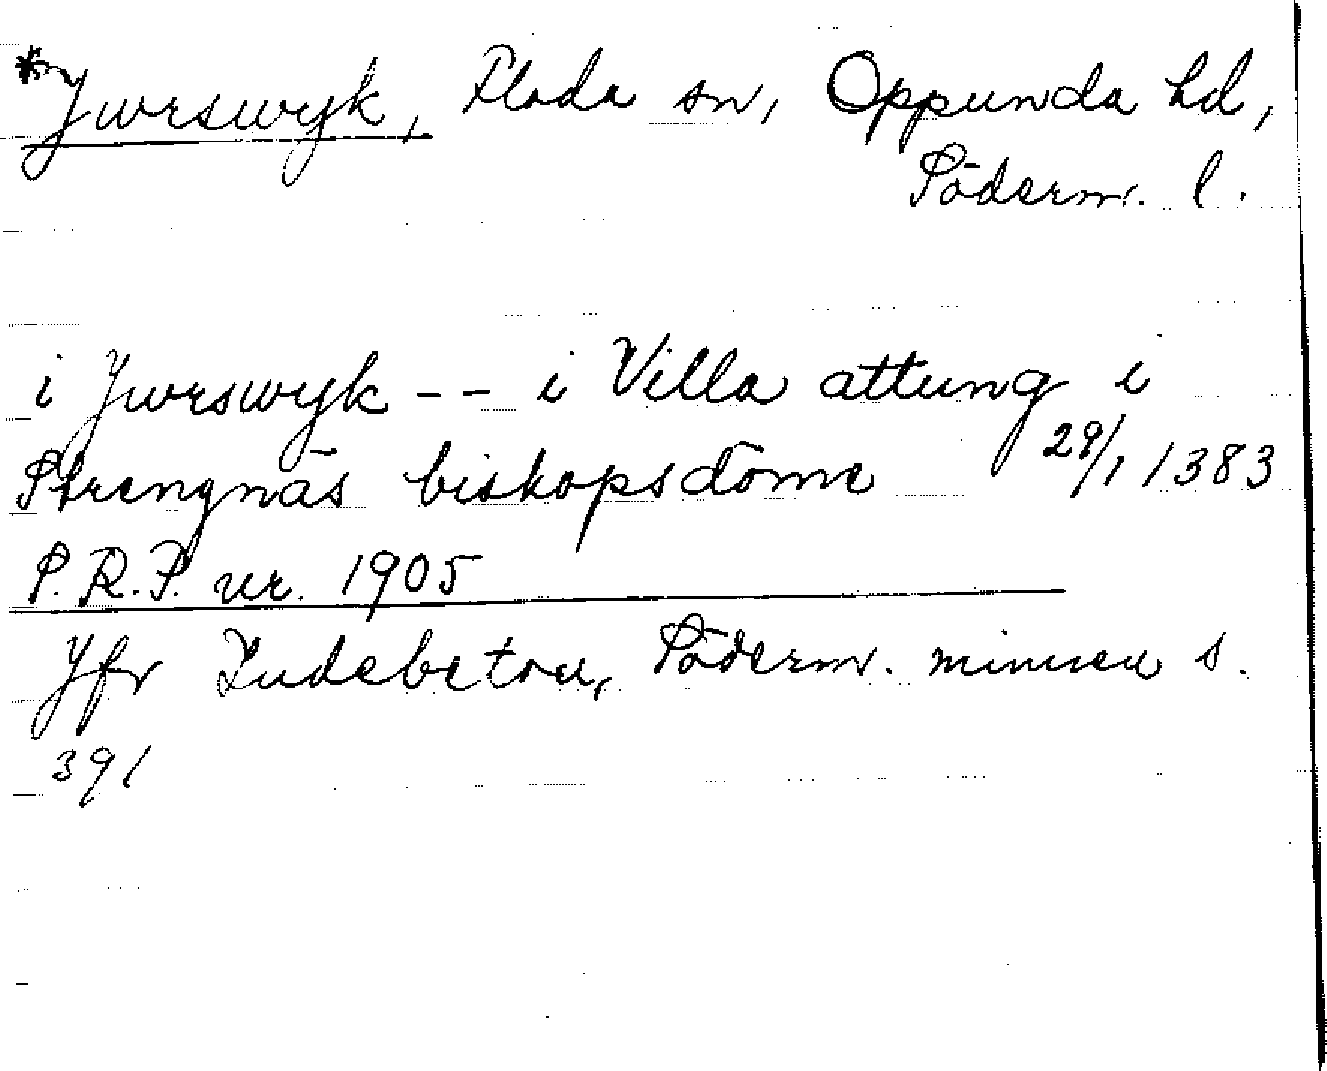 *Jwrswyk, Floda sn, Oppunda hd,
Söderm. l.
i Jwrswyk -- i Villa attung i
Strengnäs biskopsdöme 29/1 1383
S.R.P. nr. 1905
Jfr Indebetou, Söderm. minnen s.
391